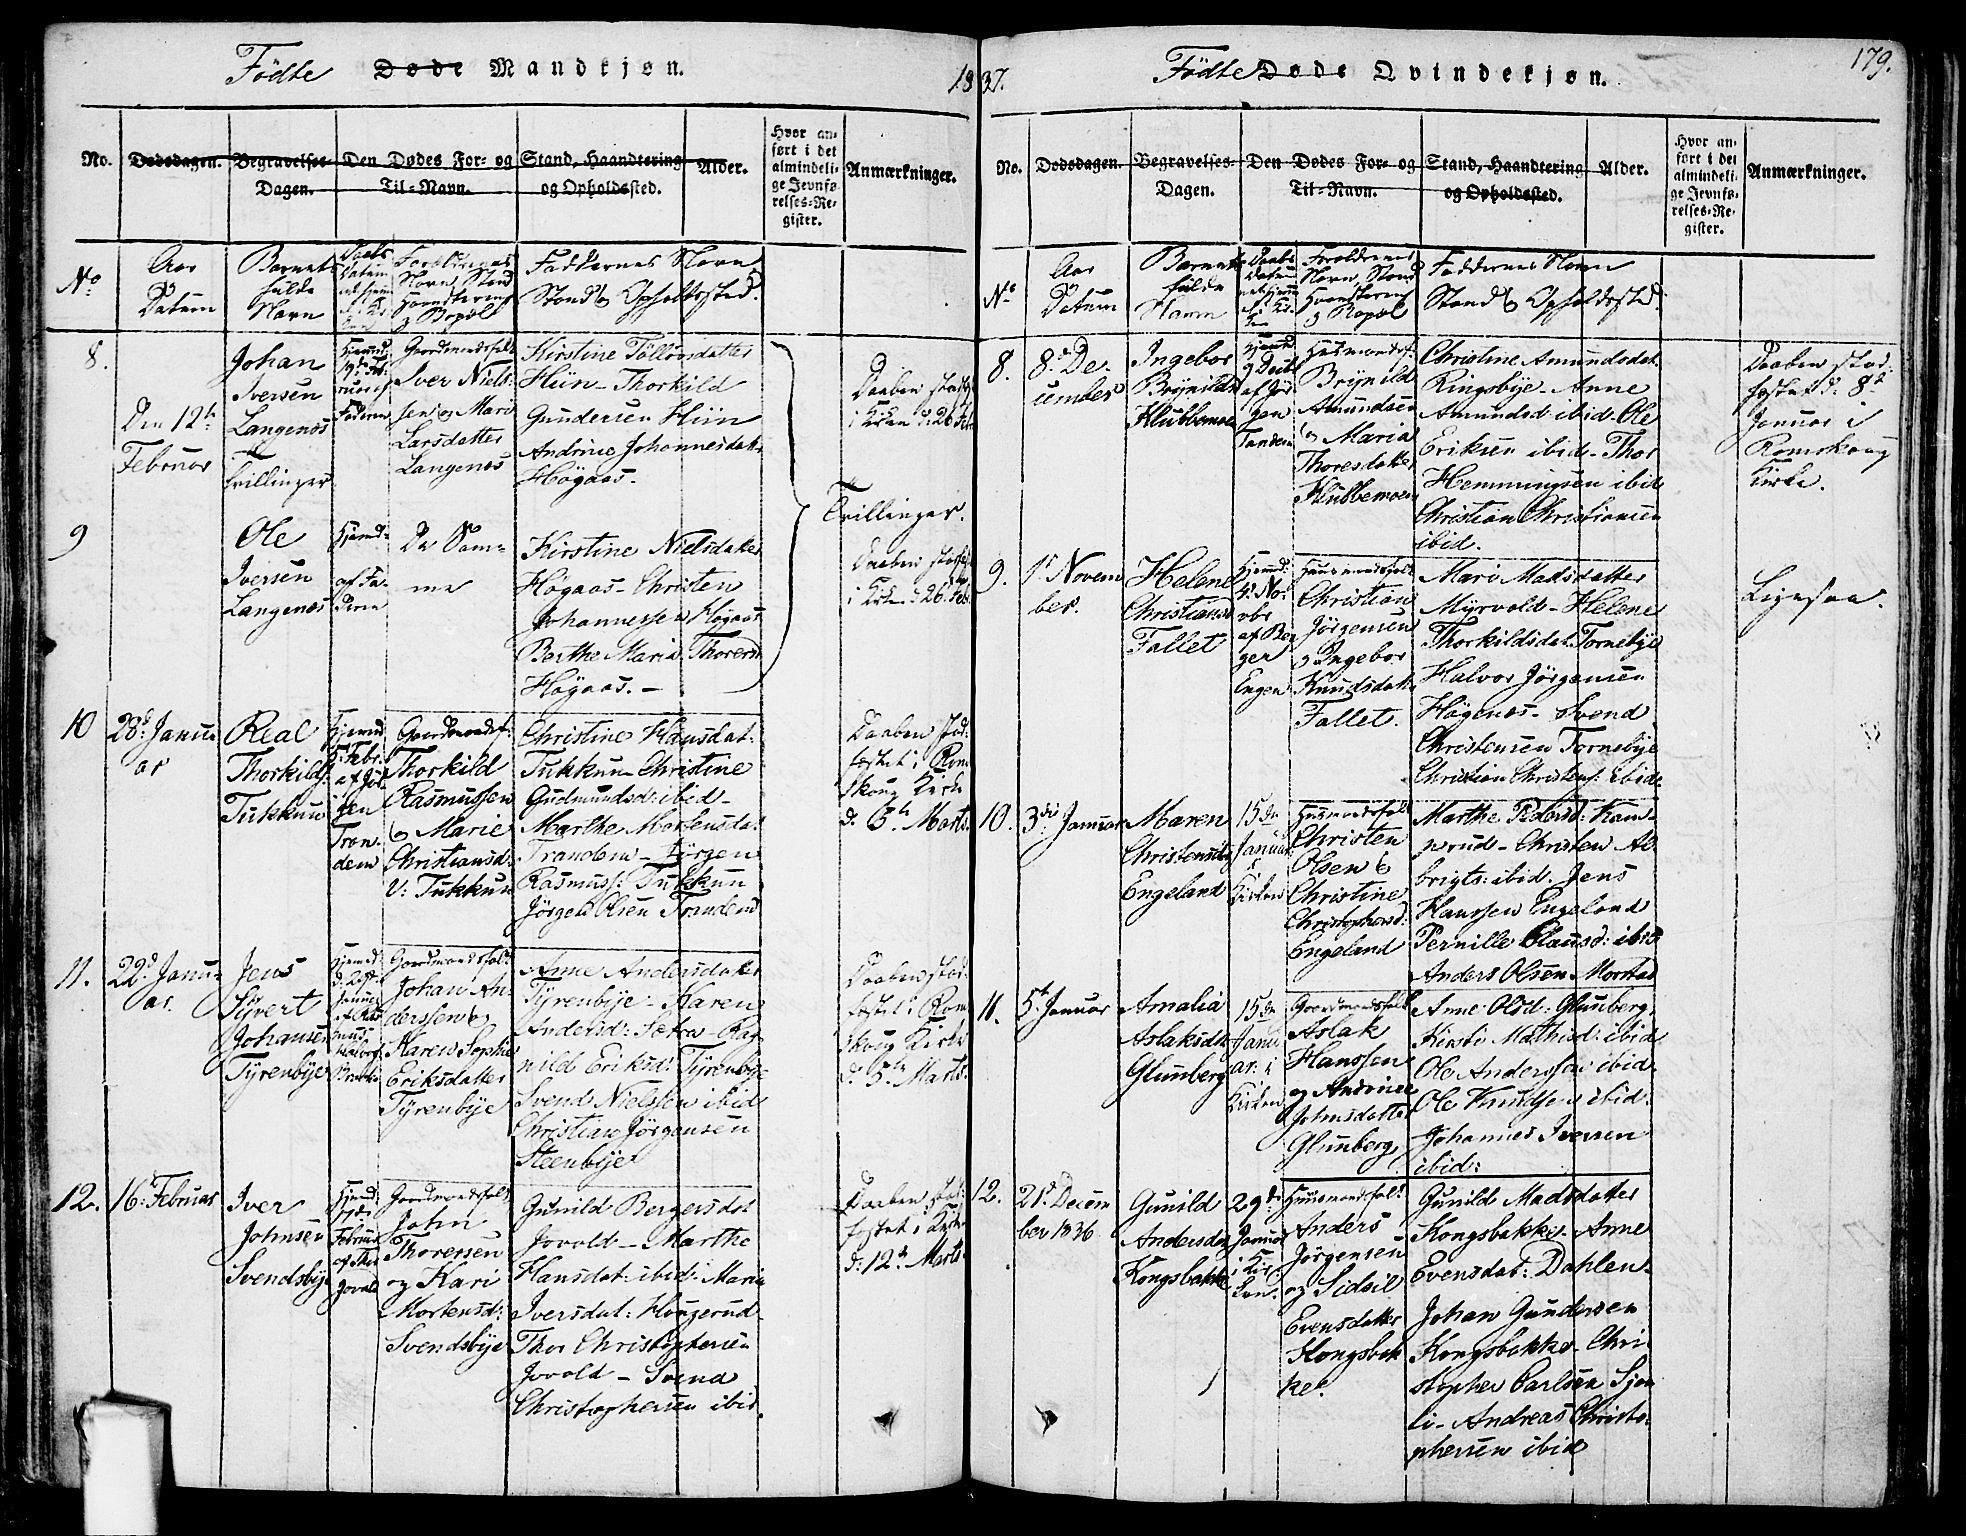 Födte Døde Mandkjøn.
1837.
No.
Dødsdagen.
Begravelses-
Dagen.
Den Dødes For- og
Til-Navn.
Stand, Haandtering
og Opholdssted.
Alder.
Hvor an-
ført i det
almindeli-
ge Jevnfø-
relses-Re-
gister.
Anmærkninger.
No
Aar
Datum
Barnets
fulde
Navn
Daabs
Datum
Forældrenes
Navn, Stand
Haandtering
& Bopæl
Faddernes Navn
Stand & Opholdssted.
8.
Den 12te
Februar
Johan
Iversen
Langenæs
trillinger
Hjemmd:
Faderen
Gaardmandsfolk
Iver Niels-
sen og Mari
Larsdatter
Langenæs
Kirstine Tollovsdatter
Hiin - Thorkild
Gundersen Hiin
Andrine Johannesdatr
Högaas.
Daaben stadf:
i Kirken d: 26 Feb:
Trillinger.
9
Ole
Iversen
Langenæs
Hjemd-
af Fa-
deren
De Sam-
me
Kirstine Nielsdatter
Högaas - Christen
Johannessen Högaas
Berthe Maria Thoresd:
Högaas. -
Daaben stadf:
i Kirken d: 26 Feb:
10
28de Janu-
ar
Real
Thorkilds:
Tukkun
Hjemmd
5t Febr:
af Jör-
gen
Tran-
dem
Gaardmandsf:
Thorkild
Rasmussen
& Marie
Christiansd:
V: Tukkun
Christine Hansdat:
Tukkun Christine
Gudmundsd: ibid -
Marthe Mortensdat
Trandem - Jörgen
Rasmuss: Tukkun
Jörgen Olsen Trandem
Daaben stad-
fæstet i Rom
skoug Kirke
d. 5te Marts.
11.
22d Janu-
ar.
Jens
Syvert
Johansen
Tyrenbye
Hjemd
Gaardmandsfolk
Johan An-
derssen og
Karen Sophie
Eriksdatter
Tyrenbye
Anne Andersdatter
Tyrenbye - Karen
Andersd: Sætra - Rag-
nild Eriksd: Tyrenbye
Svend Nielssen ibid
Christian Jörgensen
Steenbye
Daaben stad-
fæstet i Rom
skoug Kirke
d: 5te Marts.
12.
16t Februar
Iver
Johnsen
Svendsbye
Hjemd:
Februar
af Thor
Jovald
Gaardmandsfolk
John
Thoressen
og Kari
Mortensd:
Svendsbye
Gunild Bergersdat
Jovald - Marthe
Hansdat: ibid: Maria
Iversdat: Hougerud -
Thor Christophersen
Jovald - Svend
Christophersen ibid.
Daaben stad:
fæstet i Kirken
d: 12te Marts
179.
Födte Døde Qvindekjøn.
No.
Dødsdagen.
Begravelses-
Dagen.
Den Dødes For- og
Til-Navn.
Stand, Haandtering
og Opholdssted.
Alder.
Hvor an-
ført i det
almindeli-
ge Jevnfø-
relses-Re-
gister.
Anmærkninger.
No
Aar
Datum
Barnets
fulde
Navn
Daabs
Datum
Forældrenes
Navn, Stand
Haandtering
& Bopæl
Faddernes Navn
Stand & Opholdssted.
8.
8de De-
cember
Ingebor
Brynildsd
Klubbemoen
Hjemd:
af Jör
gen
Trandem
Husmandsf:
Brynild
Amundsen
& Maria
Thoresdatter
Klubbemoen
Christine Amundsdat.
Ringsbye - Anne
Amundsd: ibid - Ole
Eriksen ibid - Thor
Hemmingsen ibid
Christian Christiansen
ibid.
Daaben stad:
fæstet d: 8de
Januar i
Romskoug
Kirke.
9.
1t Novem
ber.
Helene
Christiansd
Fallet
Hjemd:
4t No:
vbr
af Ber
ger
Engen
Huusmandsfolk
Christian
Jörgensen
& Ingebor
Knudsdatr
Fallet.
Mari Madsdatter
Myrvold - Helene
Thorkildsdat: Tornebye
Halvor Jörgensen
Högenæs - Svend
Christensen Tornebye
Christian Christens: ibid:
Ligesaa.
10.
3die Januar
Maren
Christensdtr
Engeland
15de
Januar
i
Kirken
Husmandsfolk
Christen
Olsen &
Christine
Christophersd:
Engeland
Marthe Pedersd: Kam-
perud - Christen Al
brigts: ibid. Jens
Hanssen Engeland
Pernille Clausd: ibid
Anders Olsen Morstad
11.
5te Januar
Amalia
Aslaksdtr
Glumberg
15de
Janu
ar: i
Kirken
Gaardmandsfolk
Aslak
Hanssen
og Andrine
Johnsdatter
Glumberg
Anne Olsd: Glumberg,
Kirsti Mathisd: ibid
Ole Anderssen ibid.
Ole Knudsen ibid:
Johannes Iversen
ibid:
12.
21d Decem
ber 1836
Gunild
Andersdtr
Kongsbakke
29de
Januar
i Kir-
ken.
Huusmandsfolk
Anders
Jörgensen
og Sidsil
Evensdatter
Kongsbak
ke.
Gunild Madsdatter
Kongsbakke - Anne
Evensdat: Dahlen -
Johan Gundersen
Kongsbakke - Chri-
stopher Carlsen Sjøn
li - Andreas Christo-
phersen ibid